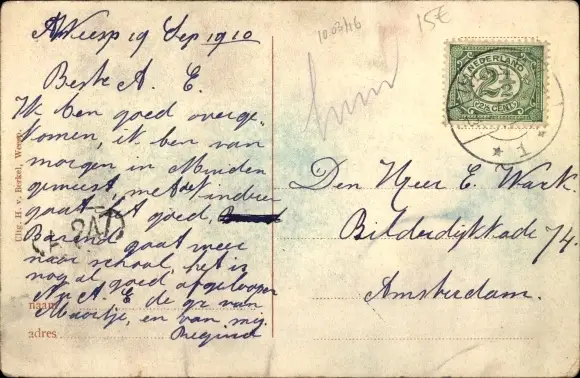 Weesp 19 Sep 1910
Beste A. E.
Ik ben goed overge-
komen, ik ben van
morgen in Muiden
geweest, met de kinderen
gaat het goed,
Barend gaat weer
naar school, het is
nog al goed afgeloopen
Nu A. E de gr van
Maartje, en van mij
naam
adres
Uitg. H. v. Berkel, Weesp.
10.03.46
15E
NEDERLAND
2½
2½ CENT
1
Den Heer E. Wark.
Bilderdijkkade 74.
Amsterdam.